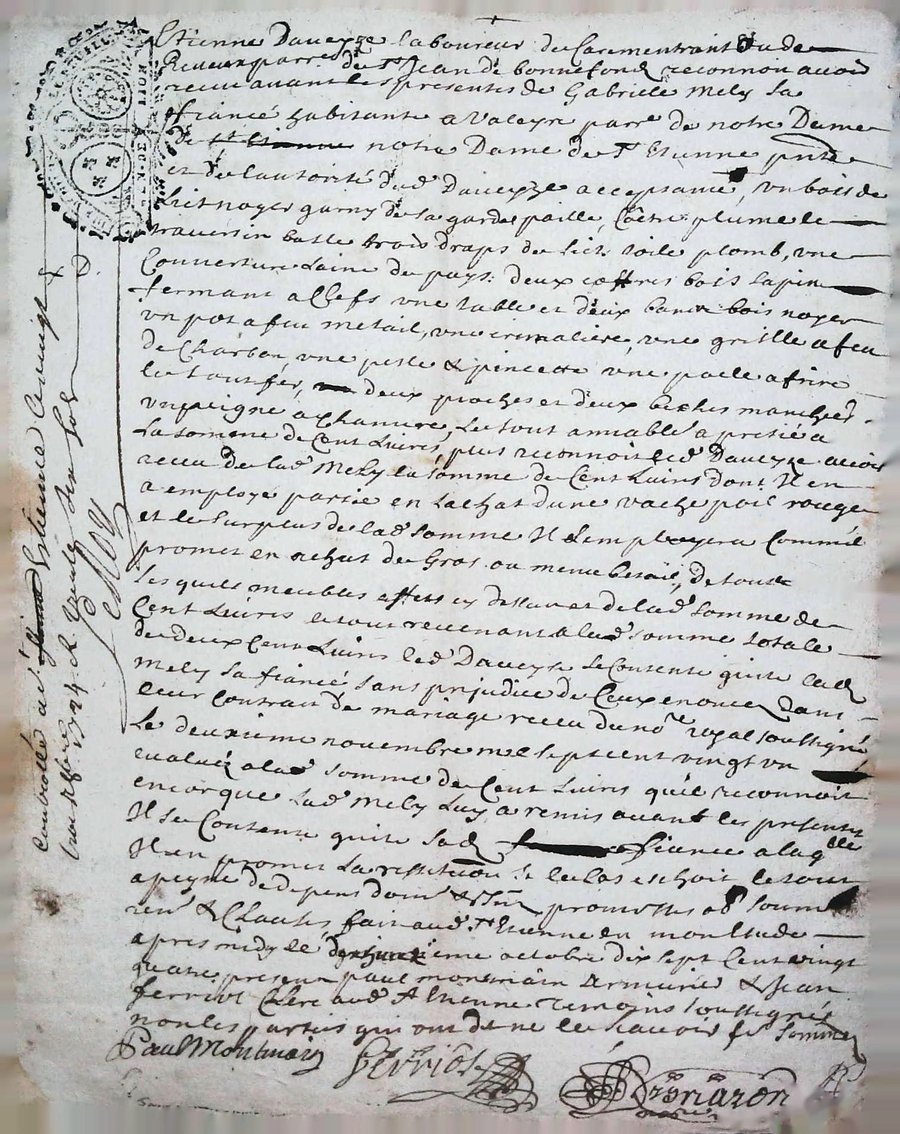 Etienne Daveyze laboureur de Caremantrant de
parre de St Jean de bonnefond reconnoit avoir
receu avant les presentes de Gabrielle Mely sa
fiancé habitante a Valeyre parre de notre Dame
de notre Dame de St Etienne pnte
et de lautorité dud Daveyze acceptante, un bois de
Lict noyer garny de sa garde paille, Coitre plume le
traversin balle trois draps de lict toile plomb, une
Couverture Laine de pays deux coffres bois sapin
fermant a Clefs une table et deux bancs bois noyer
un pot a feu metail, une cremaliere, une grille a feu
de Charbon, une pelle & pincette une poille a frire
le tout fer, deux pioches et deux beches manchées
un peigne a Chanvre, Le tout amiablem aprétié a
La somme de Cent Livres, plus reconnoit led Daveyze avoir
receu de lad Mely la somme de Cent Livres dont Il en
a employe partie en Lachat dune vache poil rouge
et le surplus de lad somme Il Lemployera Comme il
promet en achat de Gros ou menu betail, de tous
Lesquels meubles effets cy dessus et de lad somme de
Cent Livres le tout revenant a lad somme totale
de deux Cent Livres led Daveyze se Contente quitte lad
Mely sa fiancé sans prejudice de Ceux enoncez dans
leur Contrat de mariage receu du nore royal soussigné
Le deuxieme novembre mil sept cent vingt un
evalués a la somme de Cent Livres qu'il reconnoit
encor que Lad Mely Luy a remis avant les presentes
Il se Contente quite lad fiancé a laqlle
Il en promet La restitution si le Cas echoit le tout
a peyne de depens dom & promettes ob soum
ren & Clauses, fait aud St Etienne en mon Etude
apres midy le octobre dix sept Cent vingt
quatre presens paul montmain Armurier & Jean
ferriot Clerc aud St Etienne temoins soussignés
non les parties qui ont dit ne le scavoir de sommés
Paul Montmain ferriot
Controllé a St Etienne Ce vingt
1724 R Douze sols